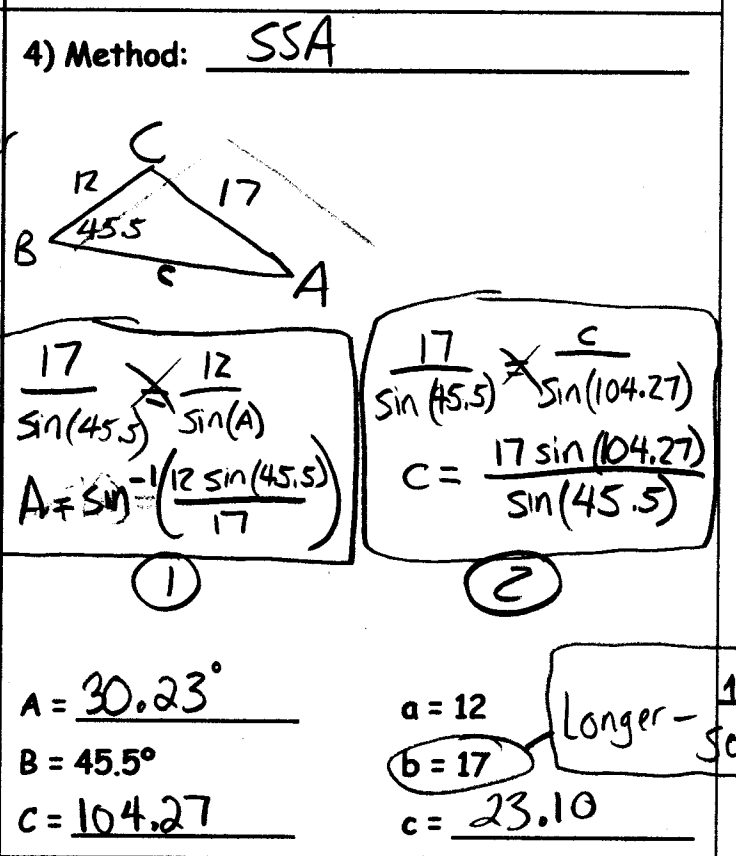 4) Method: SSA
C
12 17
B 45.5
c A
17/sin(45.5) = 12/sin(A)
A = sin⁻¹(12 sin(45.5)/17)
1
17/sin(45.5) = c/sin(104.27)
c = 17 sin(104.27)/sin(45.5)
2
A = 30.23° a = 12
B = 45.5° b = 17 Longer –
C = 104.27 c = 23.10